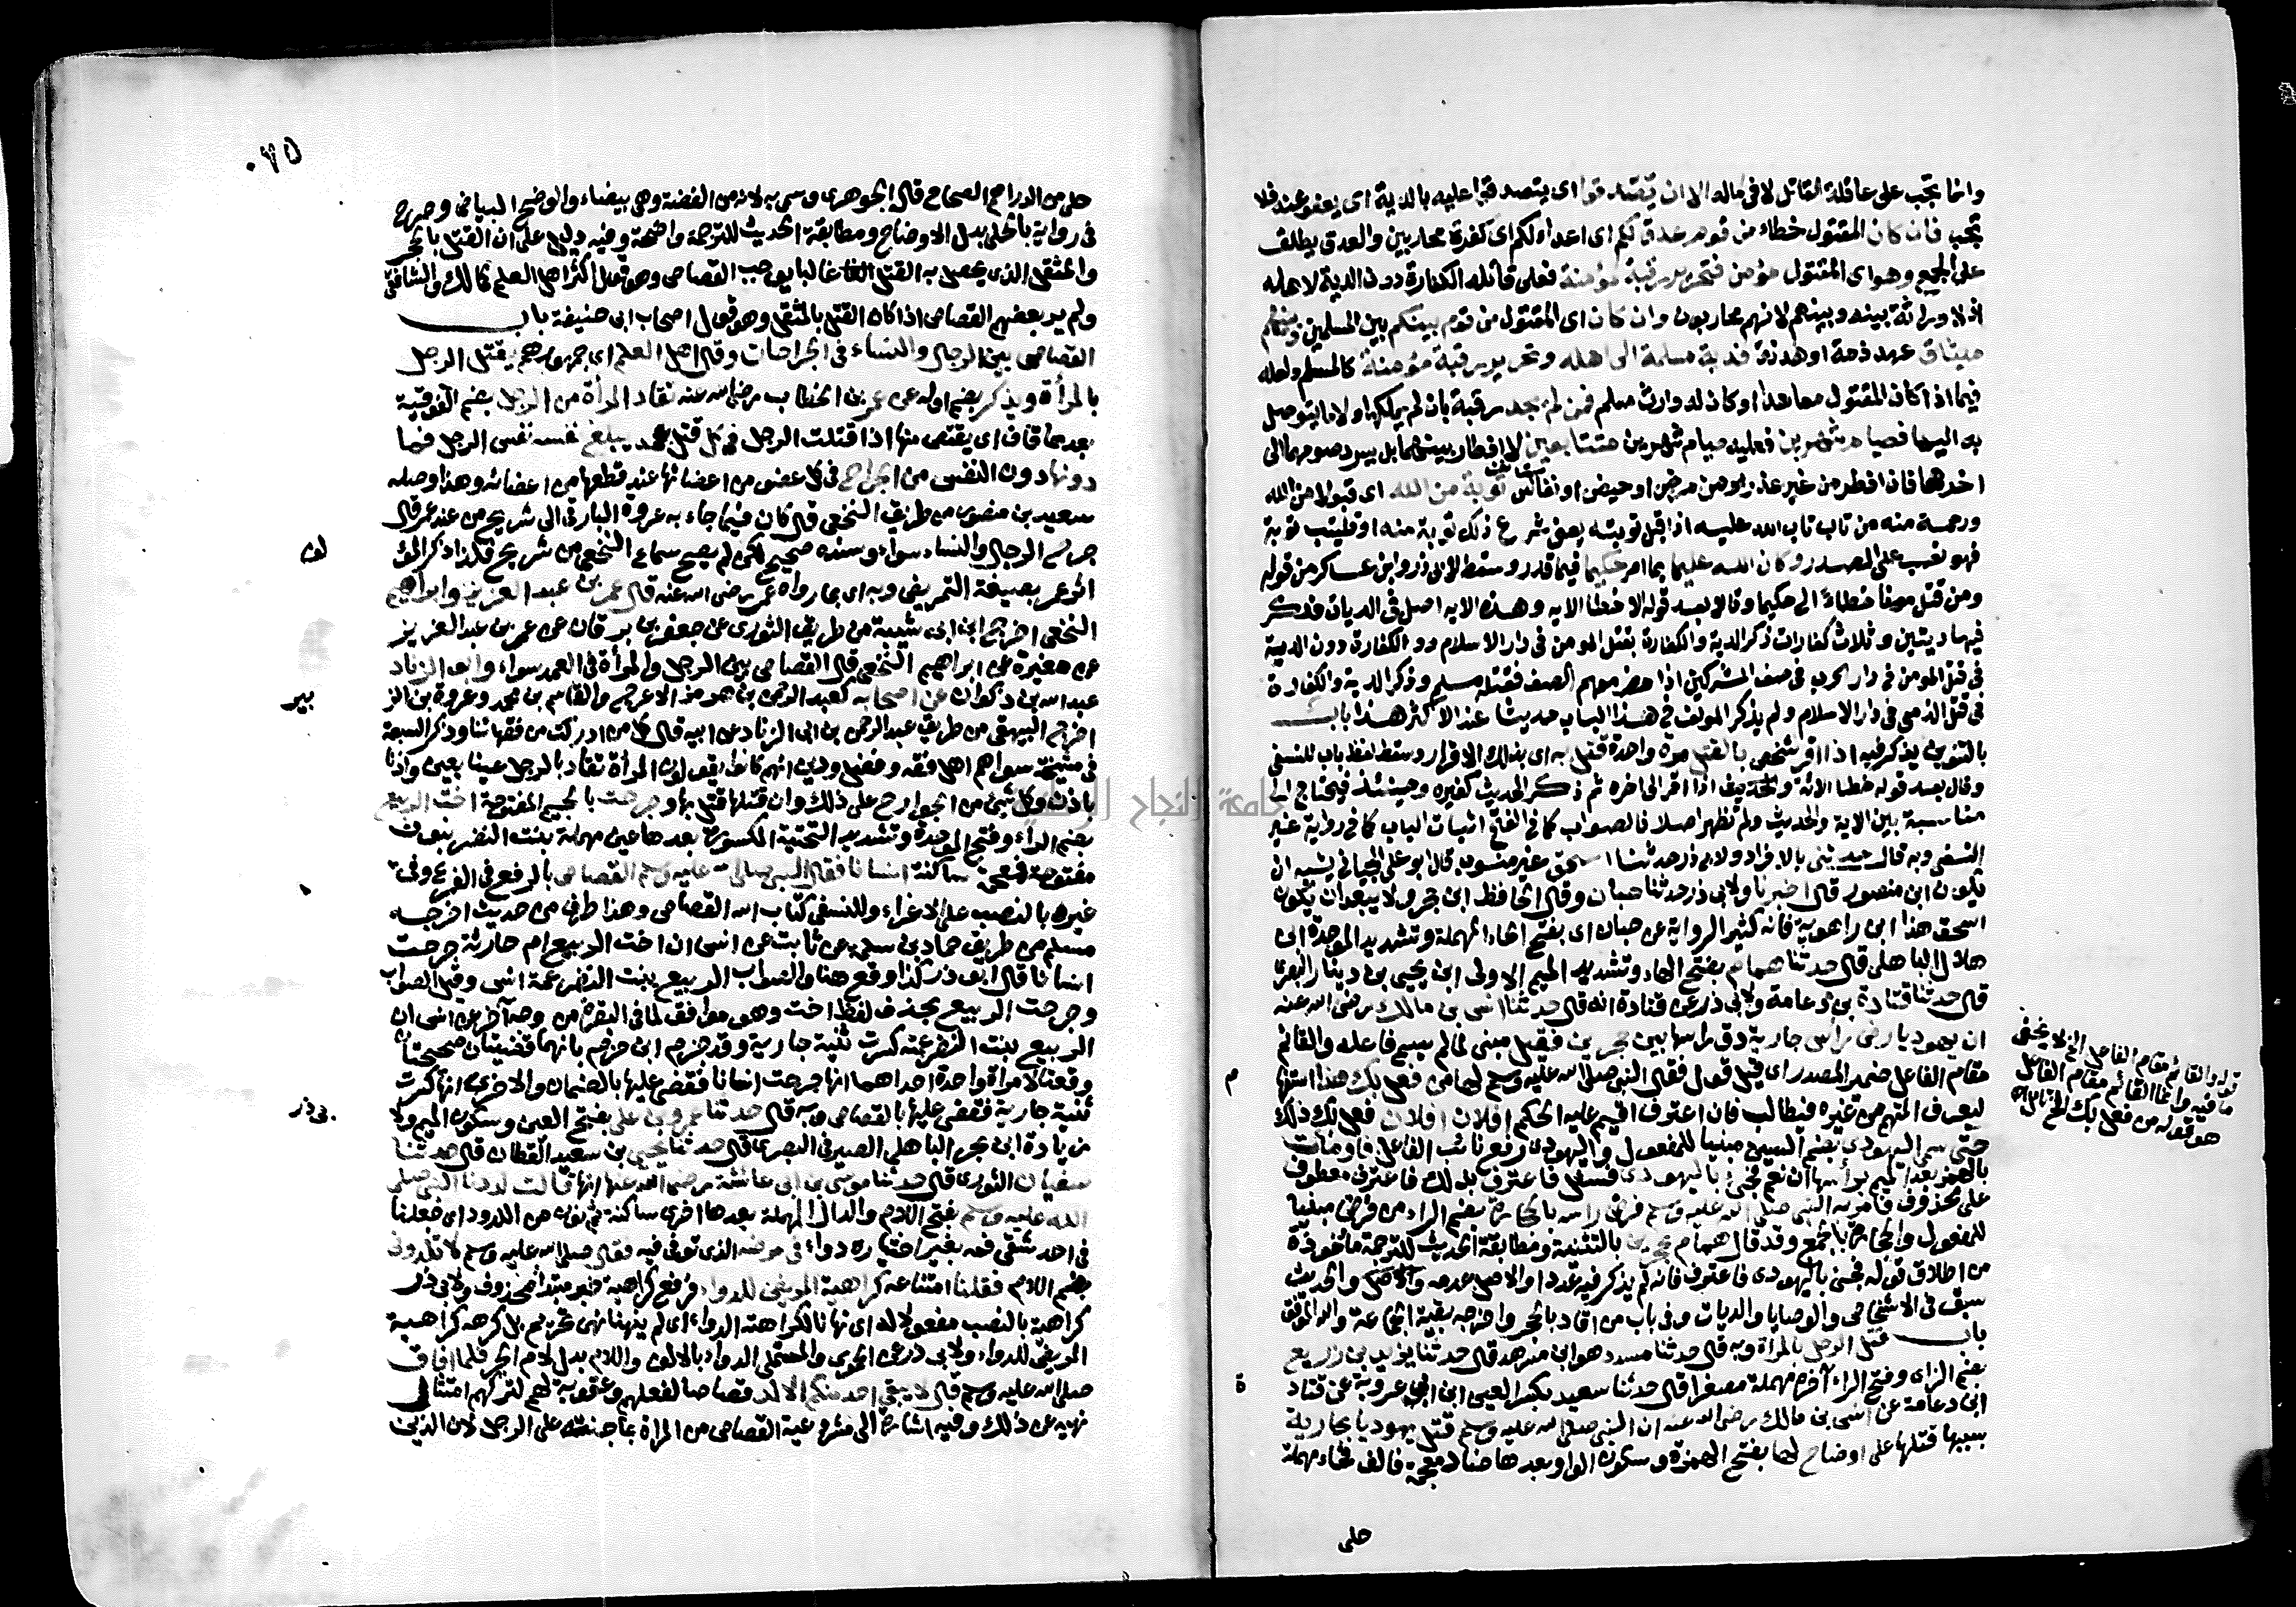 وانما تجب على عاقلة القاتل لا في ماله الا ان يصدقوا اى يتصدقوا عليه بالدية اى يعفو عنه فلا
تجب فان كان المقتول خطاء من قوم عدو لكم اى اعداء لكم اى كفرة محاربين والعدو يطلق
على الجمع وهو اى المقتول مؤمن فتحرير رقبة مؤمنة فعلى قاتله الكفارة دون الدية لاهله
اذ لا وراثة بينه وبينهم لانهم محاربون وان كان اى المقتول من قوم بينكم بين المسلمين وبينهم
ميثاق عهد ذمة او هدنة فدية مسلمة الى اهله وتحرير رقبة مؤمنة كالمسلم ولعله
فيما اذا كان المقتول معاهدا او كان له وارث مسلم فمن لم يجد رقبة بان لم يملكها ولا ما يتوصل
به اليها فصيام شهرين فعليه صيام شهرين متتابعين لا افطار بينهما بل يسرد صومهما الى
اخرهما فان افطر من غير عذر من مرض او حيض او نفاس توبة من الله اى قبولا من الله
ورحمة منه من تاب الله عليه اذا قبل توبته يعنى شرع ذلك توبة منه او فليتب توبة
فهو نصب على المصدر وكان الله عليما بما امر حكيما فيما قدر وسقط لابى ذر وابن عساكر من قوله
ومن قتل مومنا خطاءً الى حكيما وقالا بعد قوله الا خطا الايه وهذه الايه اصل فى الديات فذكر
فيها ديتين وثلاث كفارات ذكر الدية والكفارة بقتل المومن فى دار الاسلام والكفارة دون الدية
فى قتل المومن فى دار الحرب فى صف المشركين اذا حضر معهم الصف فقتله مسلم وذكر الدية والكفارة
فى قتل الذمى فى دار الاسلام ولم يذكر المولف فى هذا الباب حديثا عند الاكثر هذا باب
بالتنوين يذكر فيه اذا اقر شخص بالقتل مرة واحدة قتل به اى بذلك الاقرار وسقط لفظ باب للنسفى
وقال بعد قوله خطا الاية والتحديث اذا اقر الى اخره ثم ذكر الحديث كغيره وحينئذ فيحتاج الى
مناسبة بين الاية والحديث ولم تظهر اصلا فالصواب كما فى الفتح اثبات الباب كما فى رواية غير
النسفى وبه قال حدثنى بالافراد ولابى ذر حدثنا اسحق غير منسوب قال ابو على الجيانى يشبه ان
يكون ابن منصور قال اخبرنا ولابى ذر حدثنا حبان وقال الحافظ ابن حجر ولا يبعد ان يكون
اسحق هذا ابن راهويه فانه كثير الرواية عن حبان اى بفتح الحاء المهملة وتشديد الموحدة ابن
هلال الباهلى قال حدثنا همام بفتح الهاء وتشديد الميم الاولى ابن يحيى بن دينار البصرى
قال حدثنا قتادة بن دعامة ولابى ذر عن قتادة انه قال حدثنا انس بن مالك رضى الله عنه
ان يهوديا رض راس جارية دق راسها بين حجرين فقيل مبنى لما لم يسم فاعله والقائم
مقام الفاعل ضمير المصدر اى قيل قول فقال النبى صلى الله عليه وسلم لها من فعل بك هذا استفها
م
ليعرف المتهم من غيره فيطالب فان اعترف اقيم عليه الحكم افلان افلان فعل بك ذلك
حتى سمى اليهودى بضم السين مبنيا للمفعول واليهودى رفع نائب الفاعل فاومأت
بالهمز بعد الميم برأسها ان نعم فجئ باليهودى فسئل فاعترف بذلك فاعترف معطوف
على محذوف فامر به النبى صلى الله عليه وسلم فرض راسه بالحجارة بضم الراء من فرض مبنيا
للمفعول والحجارة بالجمع وقد قال همام بحجرين بالتثنية ومطابقة الحديث للترجمة ماخوذة
من اطلاق قوله فجئ باليهودى فاعترف فانه لم يذكر فيه عددا والاصل عدمه والاصل والحديث
سبق فى الاشخاص والوصايا والديات وفى باب من اقاد بالحجر واخرجه بقية الجماعة والله الموفق
باب قتل الرجل بالمراة وبه قال حدثنا مسدد هو ابن مسرهد قال حدثنا يزيد بن زريع
بضم الزاى وفتح الراء آخره مهملة مصغرا قال حدثنا سعيد بكسر العين ابن ابى عروبة عن قتاد
ة
ابن دعامة عن انس بن مالك رضى الله عنه ان النبى صلى الله عليه وسلم قتل يهوديا بجارية
بسببها قتلها على اوضاح لها بفتح الهمزة وسكون الواو بعدها ضاد معجمة فالف فحاء مهملة
حلى
قوله والقائم مقام الفاعل الخ لا يخفى
ما فيه وانما القائم مقام الفاعل
هو قوله من فعل بك الخ تامل
٧٥
حلى من الدراهم الصحاح قال الجوهرى وسمى به لانه من الفضة وهى بيضاء والوضح البياض وصرح
فى رواية بالحلى بدل الاوضاح ومطابقة الحديث للترجمة واضحة وفيه دليل على ان القتل بالحجر
والمثقل الذى يحصل به القتل غالبا يوجب القصاص وهو قول اكثر اهل العلم كمالك والشافعى
ولم ير بعضهم القصاص اذا كان القتل بالمثقل وهو قول اصحاب ابى حنيفة باب
القصاص بين الرجال والنساء فى الجراحات وقال اهل العلم اى جمهورهم يقتل الرجل
بالمرأة ويذكر بضم اوله عن عمر بن الخطاب رضى الله عنه تقاد المرأة من الرجل بضم الفوقية
بعدها قاف اى يقتص منها اذا قتلت الرجل فى كل قتل عمد يبلغ نفسه نفس الرجل فما
دونها دون النفس من الجراح فى كل عضو من اعضائها عند قطعها من اعضائه وهذا وصله
سعيد بن منصور من طريق النخعى قال كان فيما جاء به عروة البارقى الى شريح من عند عمر قال
جرح الرجال والنساء سواء وسنده صحيح لكن لم يصح سماع النخعى من شريح فلذا ذكر المؤ
لف
اثر عمر بصيغة التمريض وبه اى بما رواه عمر رضى الله عنه قال عمر بن عبد العزيز وابراهيم
النخعى اخرجه ابن ابى شيبة من طريق الثورى عن جعفر بن برقان عن عمر بن عبد العزيز
عن مغيرة عن ابراهيم النخعى قال القصاص بين الرجل والمرأة فى العمد سواء وابو الزناد
عبد الله بن ذكوان عن اصحابه كعبد الرحمن بن هرمز الاعرج والقاسم بن محمد وعروة بن الز
بير
اخرجه البيهقى من طريق عبد الرحمن بن ابى الزناد عن ابيه قال كل من ادركت من فقهائنا وذكر السبعة
فى مشيخة سواهم اهل فقه وفضل ودين انهم كانوا يقولون المرأة تقاد بالرجل عينا بعين واذنا
باذن وكل شئ من الجوارح على ذلك وان قتلها قتل بها وجرحت بالجيم المفتوحة اخت الربيع
بضم الراء وفتح الموحدة وتشديد التحتية المكسورة بعدها عين مهملة بنت النضر بنون
مفتوحة فمعجمة ساكنة انسانا فقال النبى صلى الله عليه وسلم القصاص بالرفع فى الفرع وفى
غيره بالنصب على الاغراء وللنسفى كتاب الله القصاص وهذا طرف من حديث اخرجه
مسلم من طريق حماد بن سلمة عن ثابت عن انس ان اخت الربيع ام حارثة جرحت
انسانا قال ابو ذر كذا وقع هنا والصواب الربيع بنت النضر عمة انس وقيل الصواب
وجرحت الربيع بحذف لفظ اخت وهو موافق لما فى البقرة من وجه آخر عن انس ان
الربيع بنت النضر عمته كسرت ثنية جارية وقد جزم ابن حزم بانهما قضيتان صحيحتان
وقعتا لامراة واحدة احداهما انها جرحت انسانا فقضى عليها بالضمان والاخرى انها كسرت
ثنية جارية فقضى عليها بالقصاص وبه قال حدثنا عمرو بن على بفتح العين وسكون الميم ولا
بى ذر
زيادة ابن بحر الباهلى الصيرفى البصرى قال حدثنا يحيى بن سعيد القطان قال حدثنا
سفيان الثورى قال حدثنا موسى بن ابى عائشة رضى الله عنها انها قالت لددنا النبى صلى
الله عليه وسلم بفتح اللام والدال المهملة بعدها اخرى ساكنة ثم نون من اللدود اى جعلنا
فى احد شقى فمه بغير اختياره دواء فى مرضه الذى توفى فيه فقال صلى الله عليه وسلم لا تلدونى
بضم اللام فقلنا امتناعه كراهية المريض للدواء فرفع كراهية خبر مبتدأ محذوف ولابى ذر
كراهية بالنصب مفعولا له اى نهانا لكراهته الدواء اى لم ينهنا نهى تحريم بل كرهه كراهية
المريض للدواء ولابى ذر عن الحموى والمستملى الدواء بالالف واللام بدل لام الجر فلما افاق
صلى الله عليه وسلم قال لا يبقى احد منكم الا لد قصاصا لفعلهم وعقوبة لهم لتركهم امتثال
نهيه عن ذلك وفيه اشارة الى مشروعية القصاص من المراة بما جنته على الرجل لان الذين